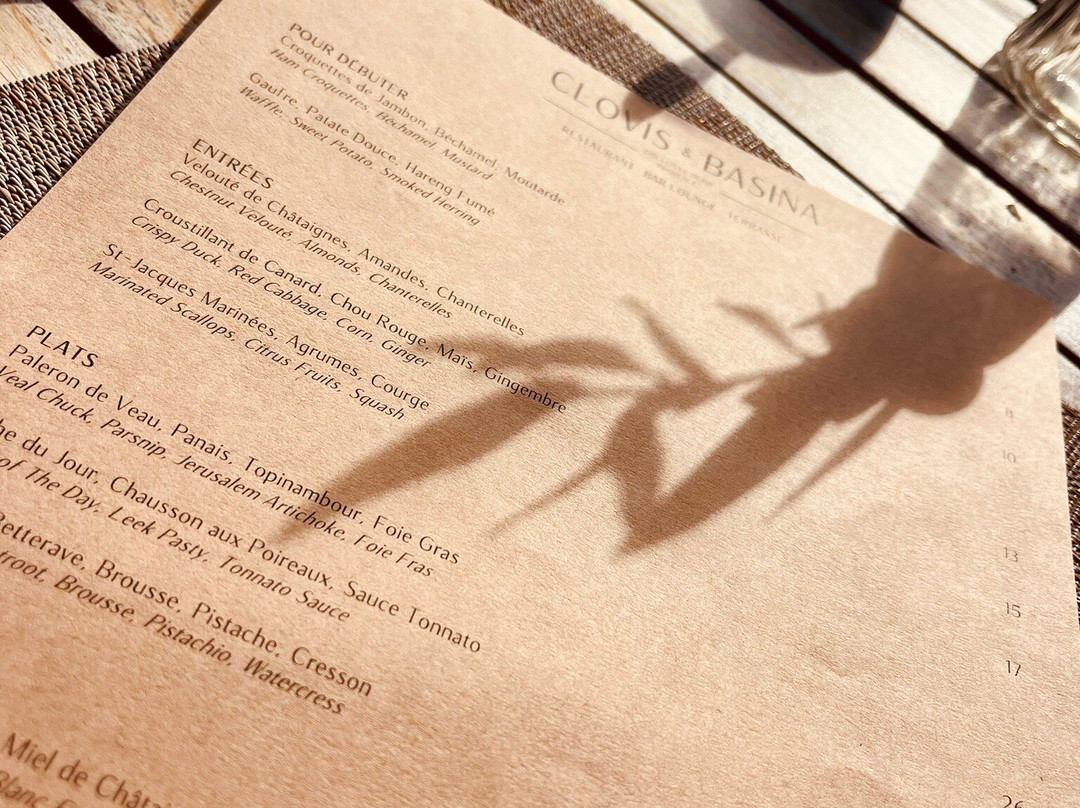 CLOVIS & BASINA
RESTAURANT BAR LOUNGE TERRASSE
POUR DÉBUTER
Croquettes de Jambon, Béchamel, Moutarde
Ham Croquettes, Béchamel, Mustard
8
Gaufre, Patate Douce, Hareng Fumé
Waffle, Sweet Potato, Smoked Herring
10
ENTRÉES
Velouté de Châtaignes, Amandes, Chanterelles
Chestnut Velouté, Almonds, Chanterelles
13
Croustillant de Canard, Chou Rouge, Maïs, Gingembre
Crispy Duck, Red Cabbage, Corn, Ginger
15
St-Jacques Marinées, Agrumes, Courge
Marinated Scallops, Citrus Fruits, Squash
17
PLATS
Paleron de Veau, Panais, Topinambour, Foie Gras
Veal Chuck, Parsnip, Jerusalem Artichoke, Foie Fras
26
he du Jour, Chausson aux Poireaux, Sauce Tonnato
of The Day, Leek Pasty, Tonnato Sauce
Betterave, Brousse, Pistache, Cresson
troot, Brousse, Pistachio, Watercress
Miel de Châtai
Blanc